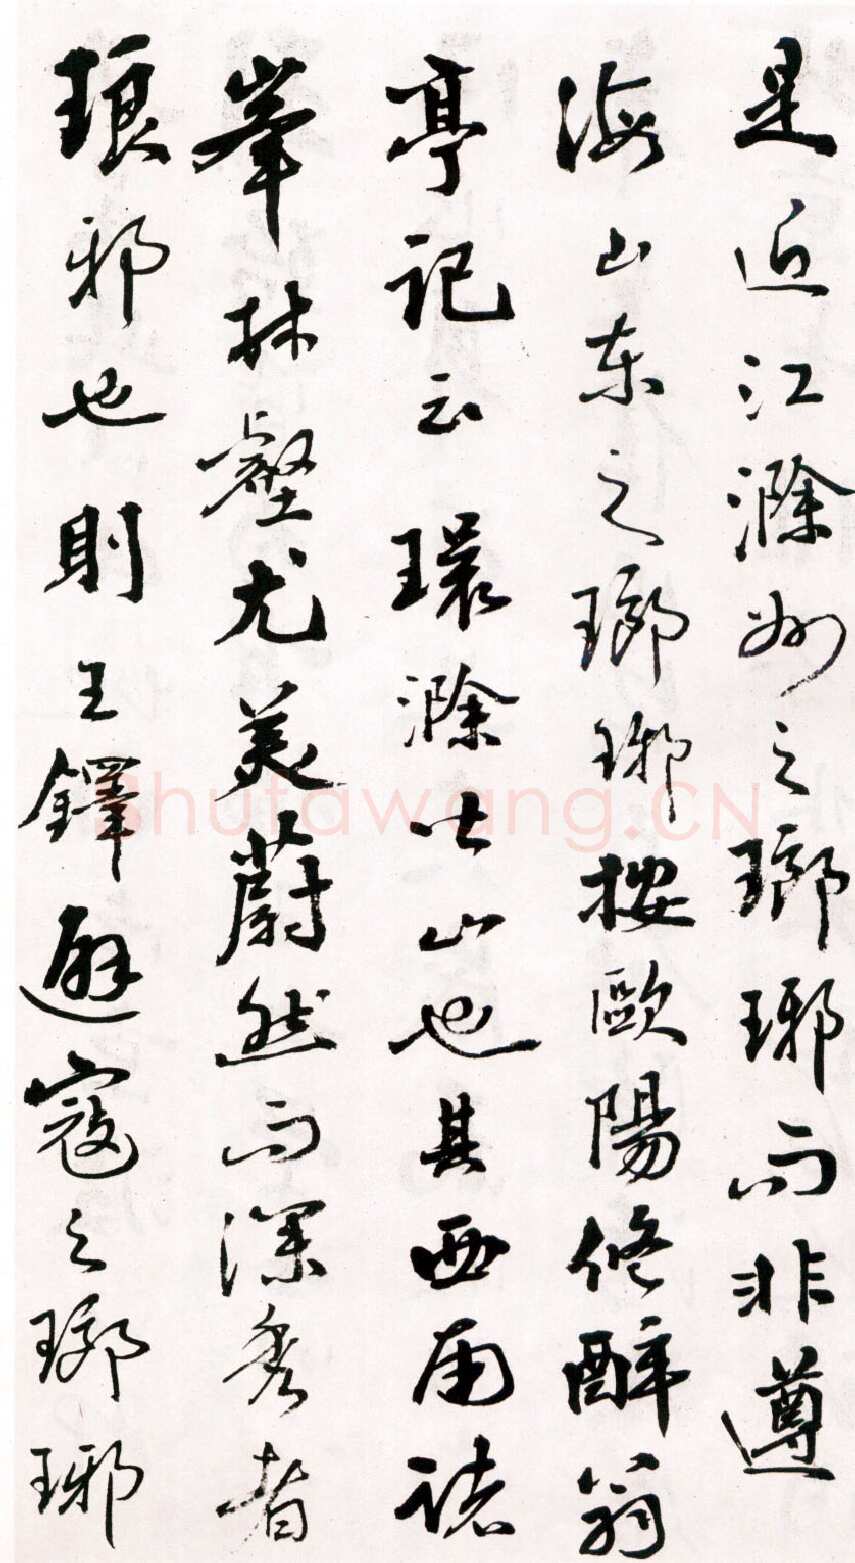 是近江滁州之瑯琊而非遵
海山东之瑯琊按歐陽修醉翁
亭記云環滁皆山也其西南诸
峯林壑尤美蔚然而深秀者
琅邪也則王鐸避寇之瑯琊
Shufawang.CN